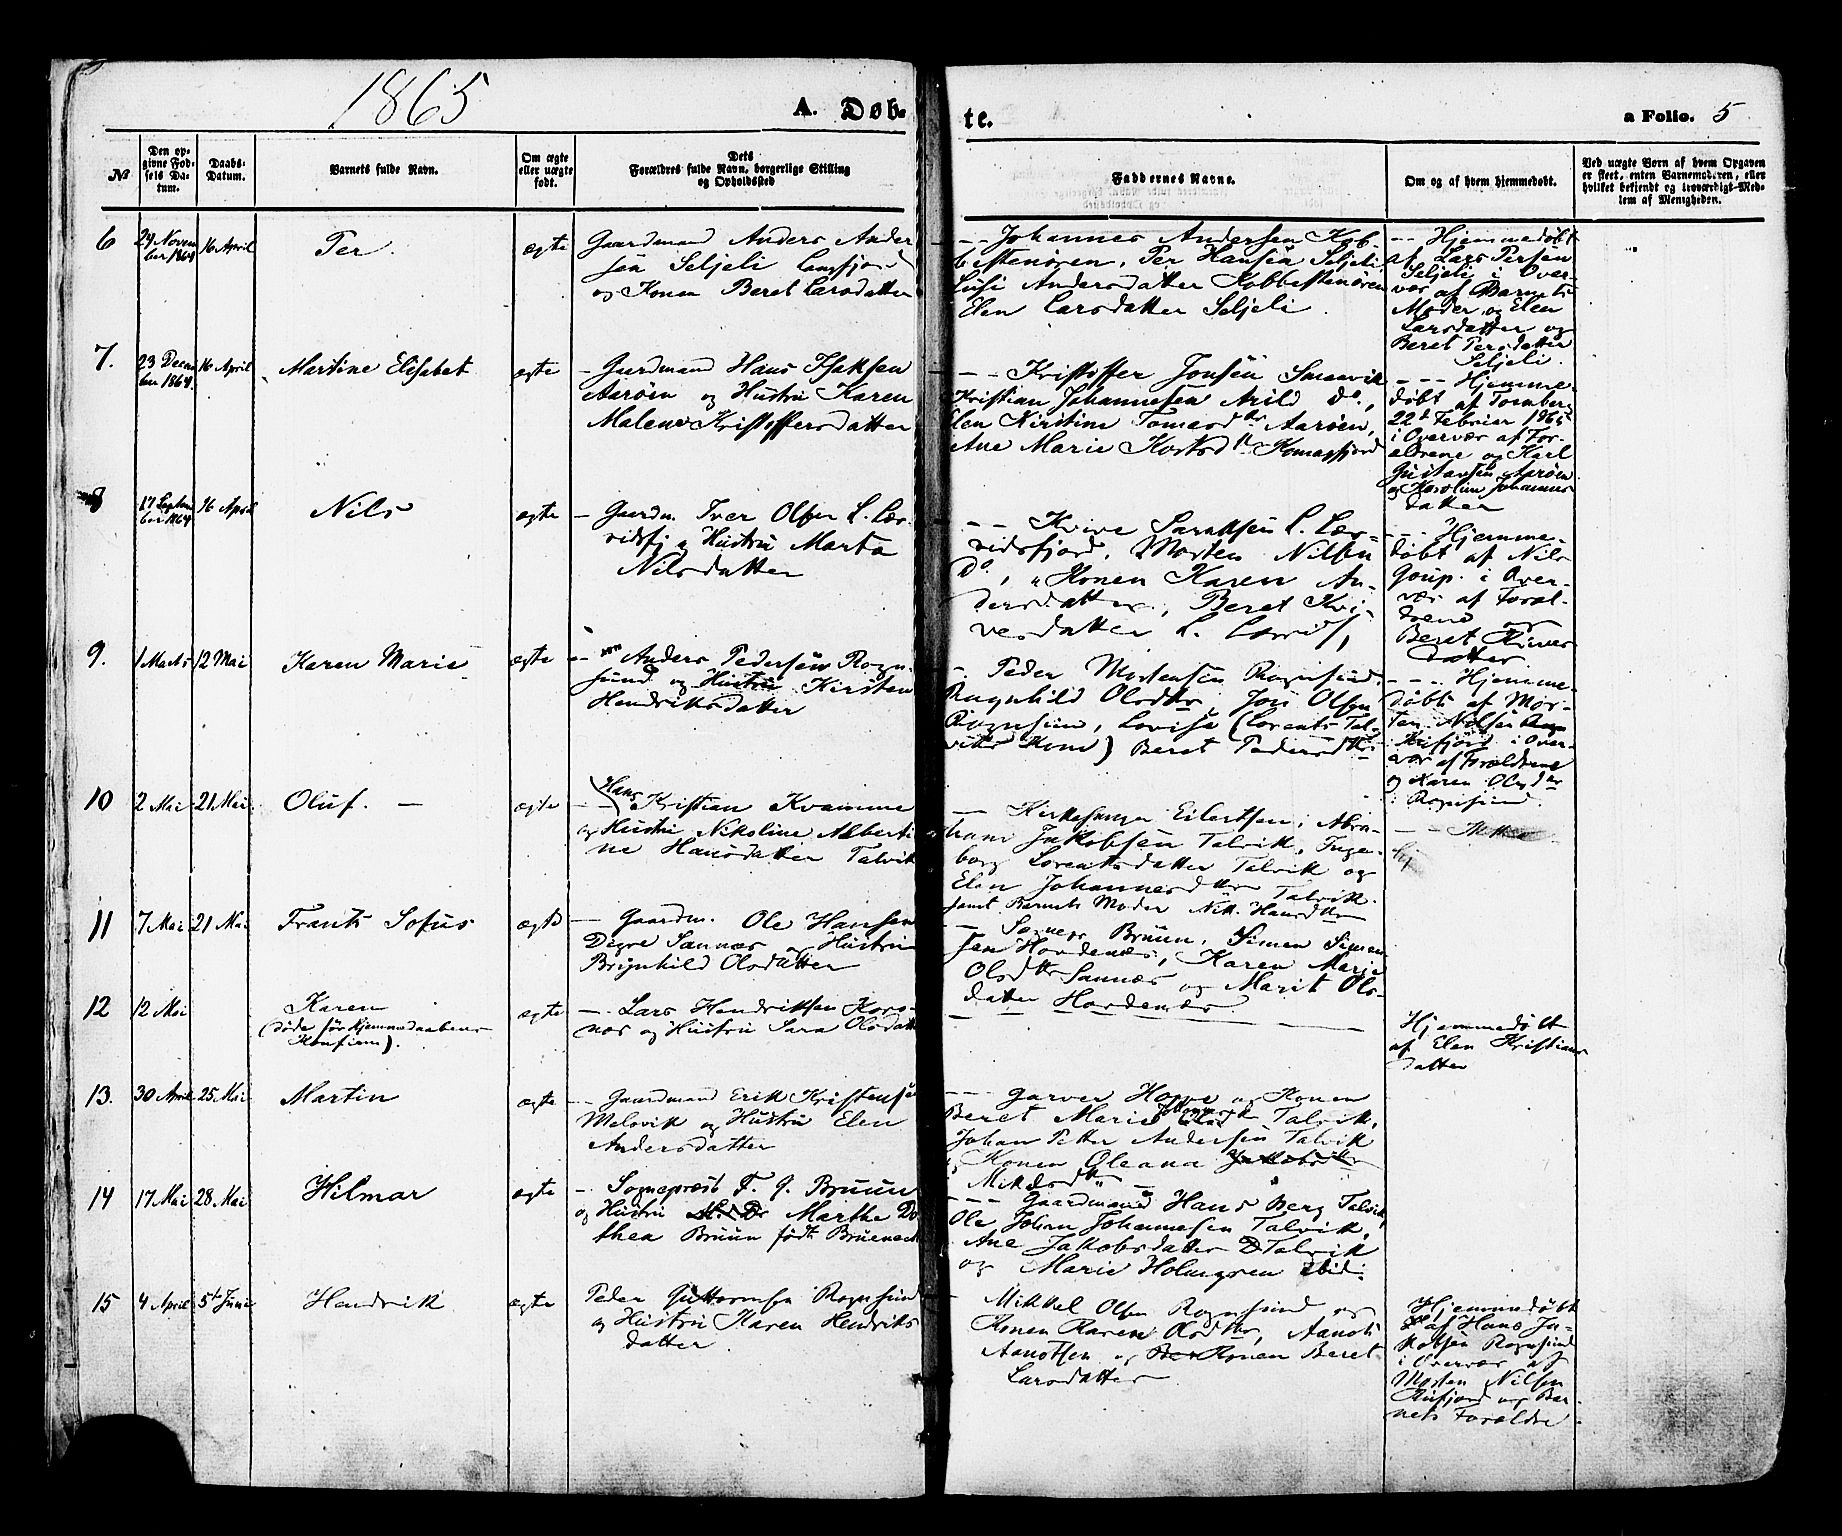 1865
A. Døb-
te.
a Folio. 5
№
Den op-
givne Fød-
sels Da-
tum.
Daabs-
Datum.
Barnets fulde Navn.
Om ægte
eller uægte
født.
Dets
Forældres fulde Navn, borgerlige Stilling
og Opholdssted
Faddernes Navne.
Om og af hvem hjemmedøbt.
Ved uægte Børn af hvem Opgaven
er skeet, enten Barnemoderen, eller
hvilket bekjendt og troværdigt Med-
lem af Menigheden.
6
24 Novem
ber 1864
16 April
Per.
ægte
Gaardmand Anders Ander
sen Seljeli Langfjord
og Konen Beret Larsdatter
-- Johannes Andersen Kob-
bestenøren, Per Hansen Seljeli
Andersdatter Kobbestenøren
Elen Larsdatter Seljeli.
-- Hjemmedøbt
af Lars Persen
Seljeli i Over-
vær af Barnets
Moder og Elen
Larsdatter og
Beret Persdatter
Seljeli.
7.
23 Decem
ber 1864
16 April
Martine Elisabet
ægte
- Gaardmand Hans Isaksen
Aarøen og Hustru Karen
Malene Kristoffersdatter
-- Kristoffer Jonsen Smaavik
Kristian Johannesen Arild do.,
Elen Kirstine Tomasdtr Aarøen,
Ane Marie Komagfjord
--- Hjemme-
døbt af
22d Februar 1865
i Overvær af For-
ældrene og Karl
Gustavsen Aarøen
og Karoline Johannes
datter
8
17 Septem
ber 1864
16 April
Nils
ægte
- Gaardm. Iver Olsen L. Ler-
ridsfj og Hustru Marta
Nilsdatter
-- Kvive L. Ler-
ridsfjord, Morten Nilsen
Do., " Konen Karen An-
dersdatter, Beret Kvi-
vesdatter L.
-- Hjemme-
døbt af Nils
i Over-
vær af Foræl-
drene og
Beret Kvives
datter
9.
1 Marts
12 Mai
Karen Marie
ægte
- Anders Pedersen Rogn-
sund og Hustru Kirsten
Hendriksdatter
- Peder Mortensen Rognsund.
Ragnhild Olsdtr, Jon Olsen
Rognsund, Lovisa (Lorents Tal-
viks Kone) Beret Pedersdtr
--- Hjemme-
døbt af Mor-
ten Nilsen
i Over-
vær af Forældrene
og Karen Olsdtr
i Rognsund.
10
2 Mai
21 Mai
Oluf. -
ægte
Hans
-- Kristian Kvamme
og Hustru Nikoline Alberti
ne Hansdatter Talvik
-- Kirkesanger Eilertsen, Abra-
ham Jakobsen Talvik, Inge-
borg Lorentsdatter Talvik og
Elen Johannesdtr Talvik.
samt Barnets Moder Nik. Hansdtr
11
7 Mai
21 Mai
Frants Sofus
ægte
- Gaardm. Ole Hansen
Digre Sannæs og Hustru
Brynhild Olsdatter
- Sognepr Bruun, Simen Simen
sen Hordenæs, Karen Marie
Olsdtr Sannæs og Marit Ols-
datter Hordenæs.
12
12 Mai
Karen
(døde før Hjemmedaabens
Konfirm).
ægte
- Lars Hendriksen Kors-
næs og Hustru Sara Olsdatter
Hjemmedøbt
af Elen Kristians
datter
13.
30 April
25 Mai
Martin
ægte
- Gaardmand Erik Kristensen
Melsvik og Hustru Elen
Andersdatter
-- Garver Hoppe og Konen
Beret Marie Talvik,
Johan Petter Andersen Talvik
og Konen Oleana
Mikkelsdtr
14
17 Mai
28 Mai
Hilmar
ægte
- Sognepræst F. G. Bruun
og Hustru Marthe Do
thea Bruun født
--- Gaardmand Hans Berg Talvik,
Ole Johan Johannesen Talvik,
Ane Jakobsdatter Talvik
og Marie Holmgren ibid.
15
4 April
5te Juni
Hendrik
ægte
Peder Guttormsen Rognsund
og Hustru Karen Hendriks
datter
- Mikkel Olsen Rognsund og
Konen Karen Olsdtr,
og Konen Beret
Larsdatter
Hjemmedøbt
af Hans Ja-
kobsen Rognsund
i Overvær af
Morten Nilsen
og Bar-
nets Forældre